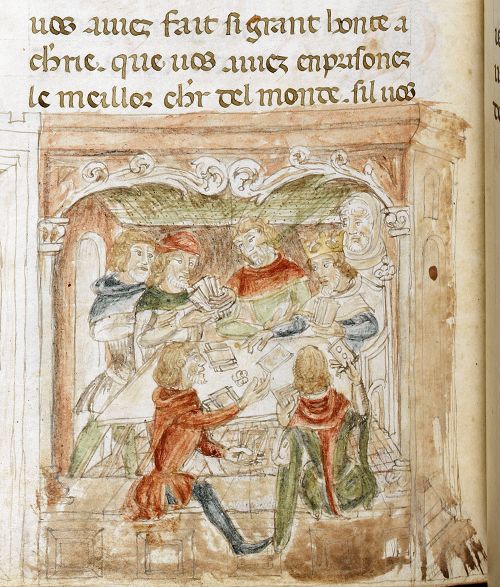 uos auiez fait si grant honte a
chrie. que uos auiez enprisonez
le meillor chr del monde. sil uos